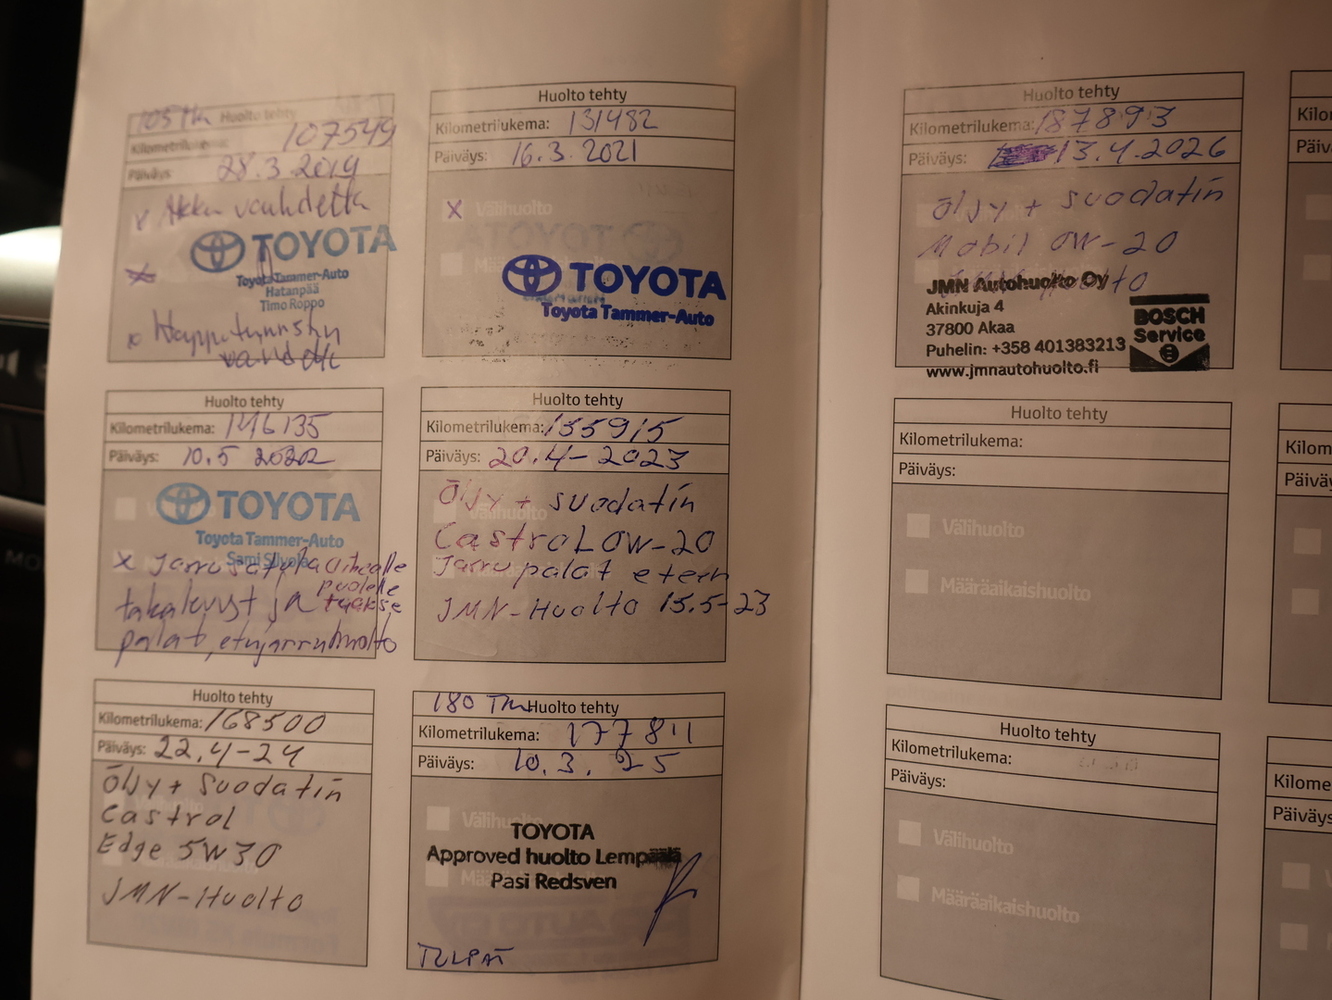 105 tkm Huolto tehty
Kilometrilukema: 107549
Päiväys: 28.3.2019
x Akku vaihdettu
TOYOTA
Toyota Tammer-Auto
Hatanpää
Timo Roppo
x Happotunnistin
Huolto tehty
Kilometrilukema: 131482
Päiväys: 16.3.2021
x Välihuolto
TOYOTA
Toyota Tammer-Auto
Huolto tehty
Kilometrilukema: 146135
Päiväys: 10.5 2022
TOYOTA
Toyota Tammer-Auto
Sami
x
puolelle
takalevyt ja taakse
palat, etujarruhuolto
Huolto tehty
Kilometrilukema: 155915
Päiväys: 20.4-2023
Öljy + suodatin
Castrol 0W-20
Jarrupalat eteen
JMN-Huolto 15.5-23
Huolto tehty
Kilometrilukema: 168500
Päiväys: 22.4-24
Öljy + suodatin
Castrol
Edge 5W30
JMN-Huolto
180 Tkm Huolto tehty
Kilometrilukema: 177811
Päiväys: 10.3.25
Välihuolto
TOYOTA
Approved huolto Lempäälä
Pasi Redsven
TULPAT
Huolto tehty
Kilometrilukema: 187893
Päiväys: 13.4.2026
Öljy + suodatin
Mobil 0W-20
JMN Autohuolto Oy
Akinkuja 4
37800 Akaa
Puhelin: +358 401383213
www.jmnautohuolto.fi
BOSCH
Service
Huolto tehty
Kilometrilukema:
Päiväys:
Välihuolto
Määräaikaishuolto
Huolto tehty
Kilometrilukema:
Päiväys:
Välihuolto
Määräaikaishuolto
Päiväys:
Kilome
Päiväys
Kilome
Päiväys